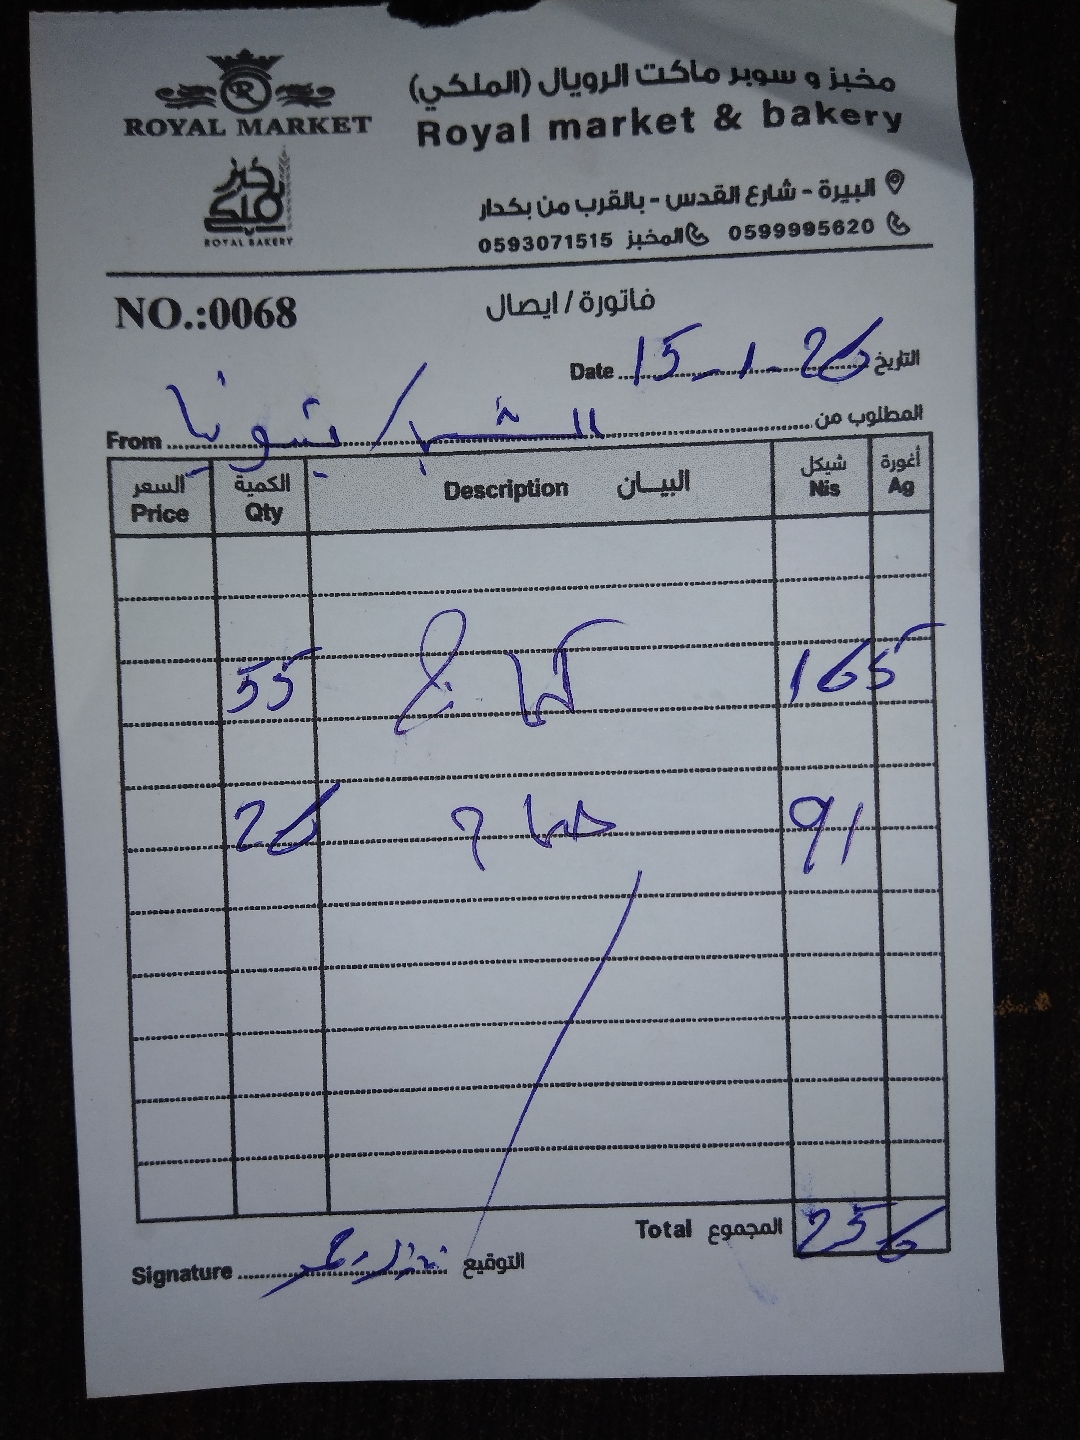 ROYAL MARKET
خبز ملكي
ROYAL BAKERY
مخبز و سوبر ماكت الرويال (الملكي)
Royal market & bakery
البيرة - شارع القدس - بالقرب من بكدار
0599995620 المخبز 0593071515
NO.:0068
فاتورة / ايصال
Date 15-1-26 التاريخ
From المطلوب من
السعر الكمية البيان شيكل أغورة
Price Qty Description Nis Ag
55 165
26 91
Total المجموع 256
Signature التوقيع